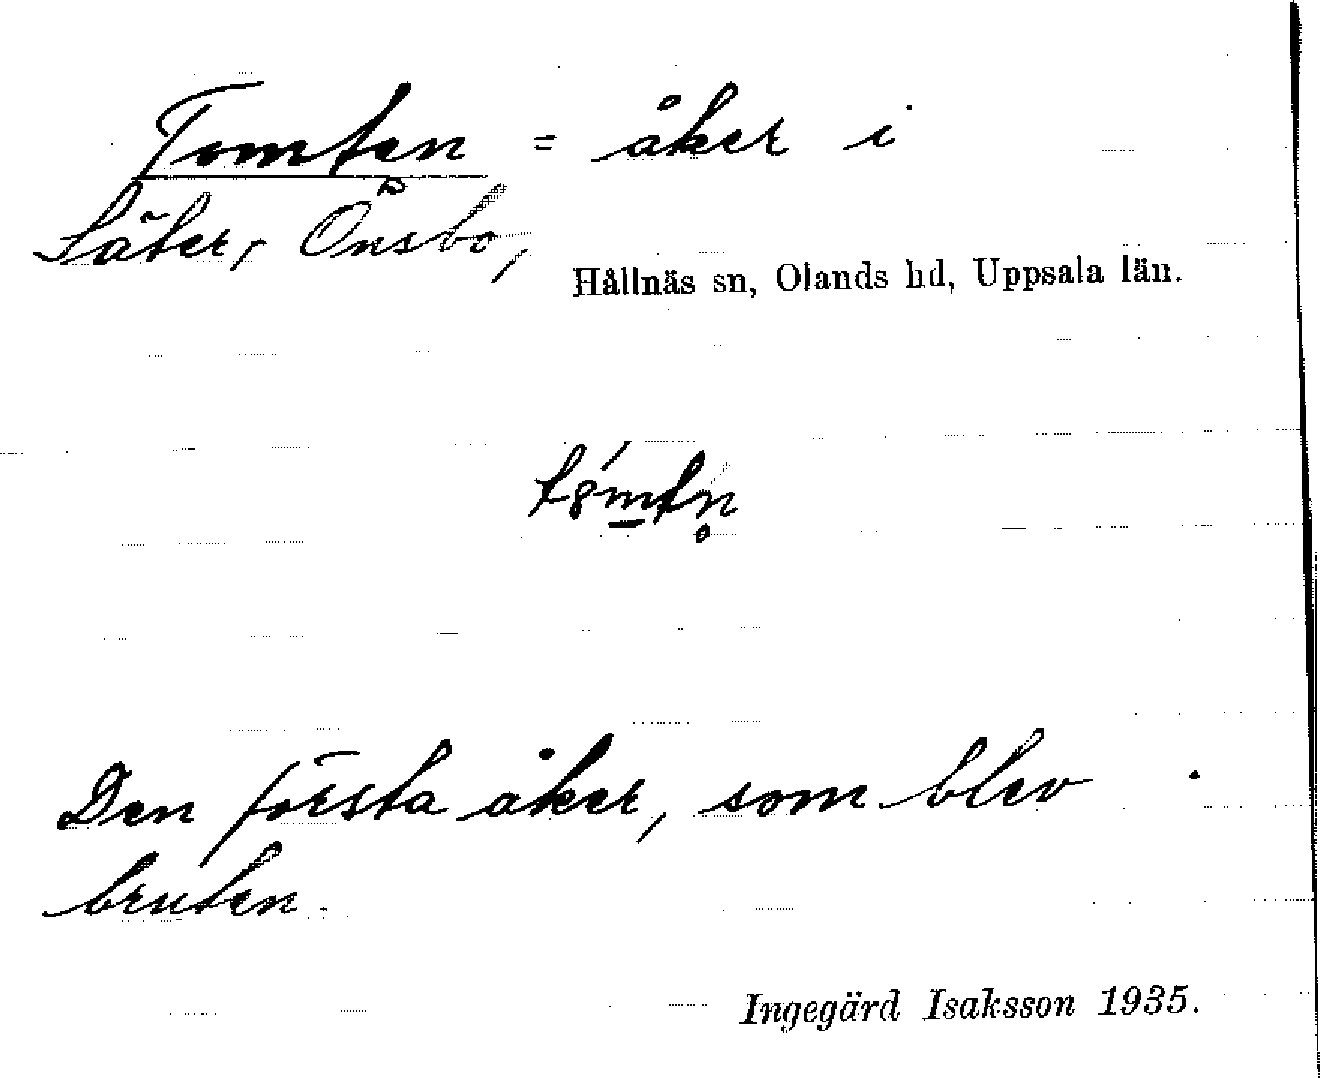 Tomten = åker i
Säter, Önsbo,
Hållnäs sn, Olands hd, Uppsala län.
Den första åker, som blev
bruten.
Ingegärd Isaksson 1935.